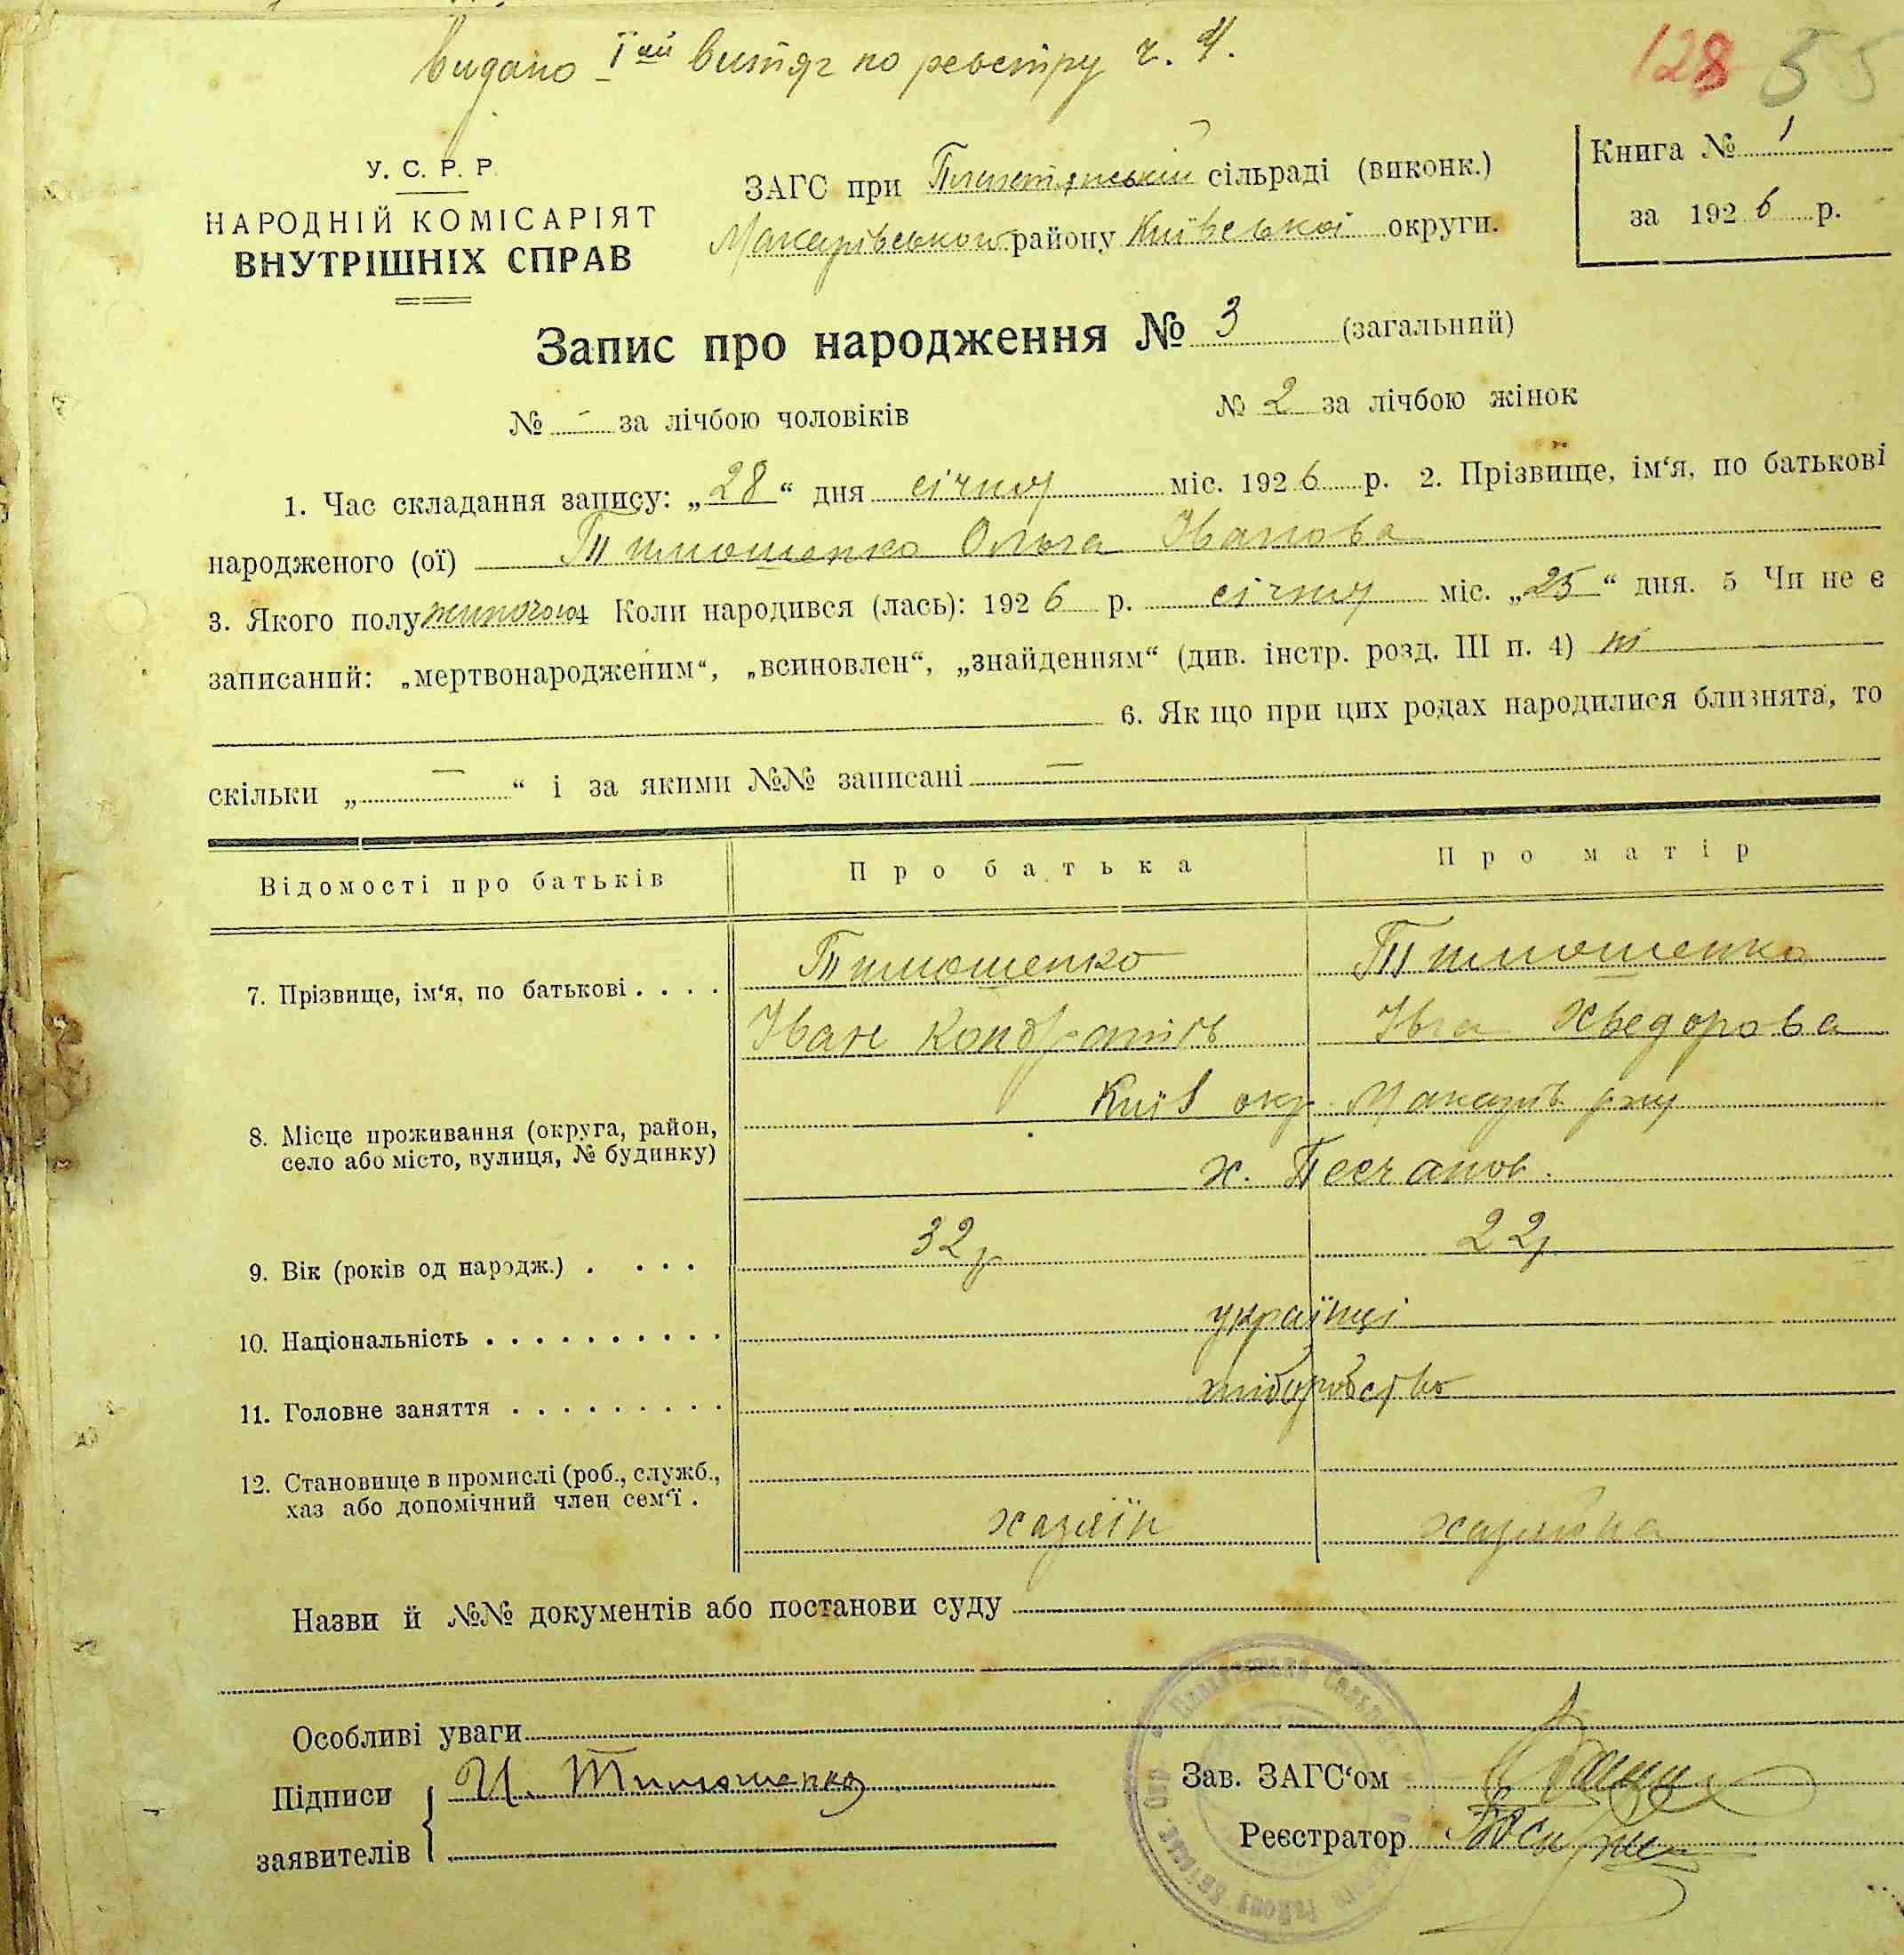 видано Іий витяг по реєстру ч. 4.
128 55
У. С. Р. Р.
НАРОДНІЙ КОМІСАРІЯТ
ВНУТРІШНІХ СПРАВ
ЗАГС при сільраді (виконк.)
Макарівського району Київської округи.
Книга № 1
за 1926 р.
Запис про народження № 3 (загальний)
№ - за лічбою чоловіків № 2 за лічбою жінок
1. Час складання запису: „28“ дня січня міс. 1926 р. 2. Прізвище, ім‘я, по батькові
народженого (ої) Тимошенко Ольга Іванова
3. Якого полу жиночого 4 Коли народився (лась): 1926 р. січня міс. „25“ дня. 5 Чи не є
записаний: „мертвонародженим“, „всиновлен“, „знайденням“ (див. інстр. розд. III п. 4) ні
6. Як що при цих родах народилися близнята, то
скільки „ — “ і за якими №№ записані —
Відомості про батьків Про батька Про матір
7. Прізвище, ім‘я, по батькові . . . . Тимошенко Тимошенко
Іван Кондратів Івга Хведорова
8. Місце проживання (округа, район,
село або місто, вулиця, № будинку)
Київ окр. Макарів р-ну
х. Песчанов.
9. Вік (років од народж.) . . . . 32р 22р
10. Національність . . . . . . . . . . українці
11. Головне заняття . . . . . . . . . хліборобство
12. Становище в промислі (роб., служб.,
хаз або допомічний член сем‘ї .
хазяїн хазяйка
Назви й №№ документів або постанови суду
Особливі уваги
Підписи
заявителів
И. Тимошенко
Зав. ЗАГС‘ом
Реєстратор